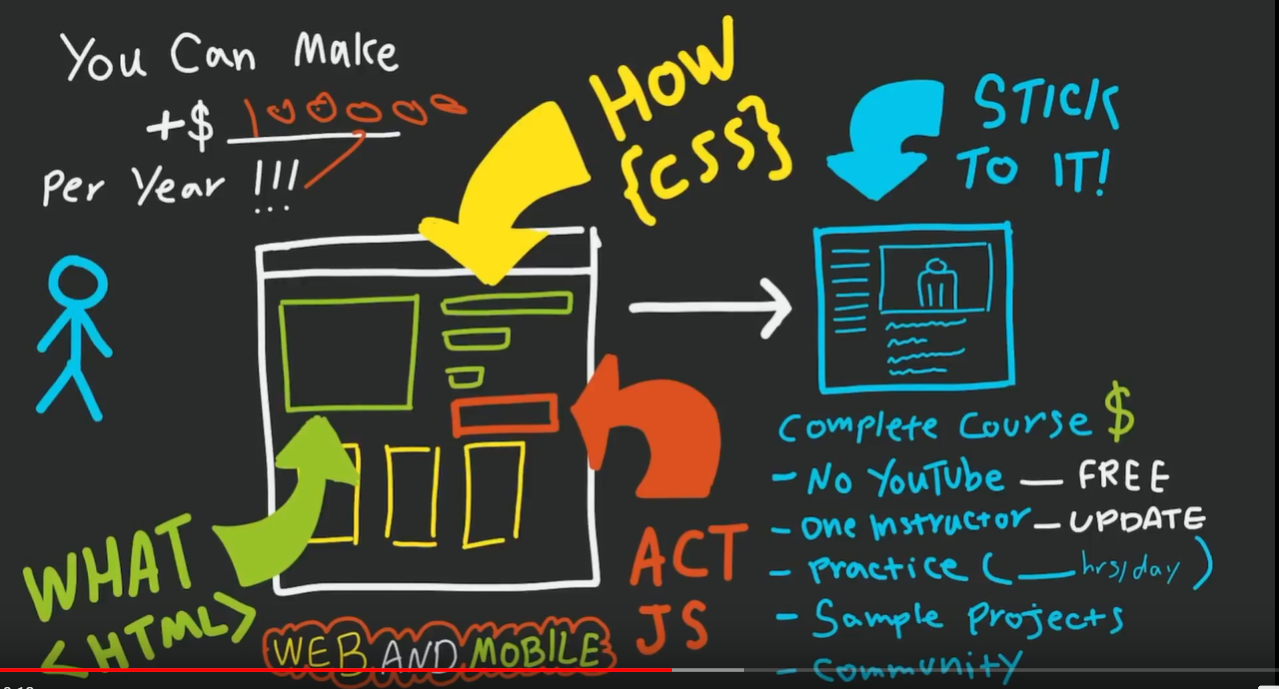 You Can Make
+$ 100000
Per Year !!!
How
{CSS}
STICK
TO IT!
WHAT
<HTML>
ACT
JS
WEB AND MOBILE
Complete Course $
- No YouTube — FREE
- One Instructor — UPDATE
- Practice (___ hrs/day)
- Sample Projects
- Community